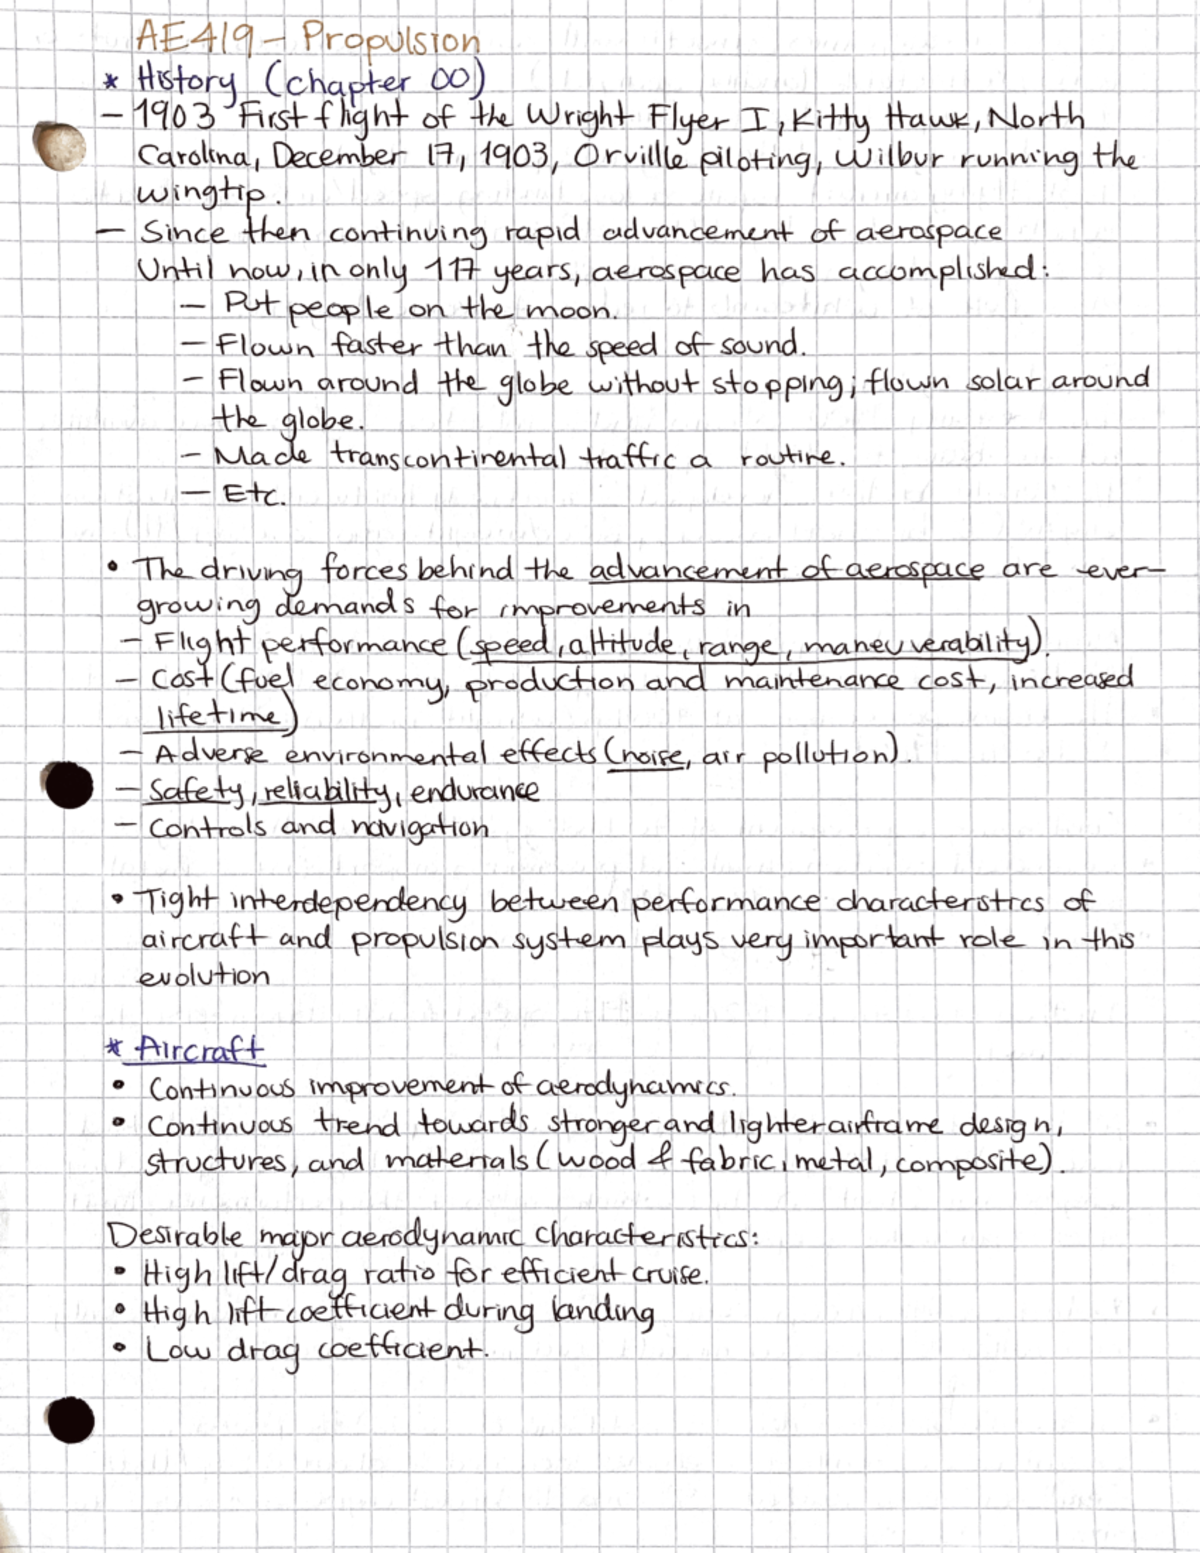 AE419 - Propulsion
* History (chapter 00)
- 1903 First flight of the Wright Flyer I, Kitty Hawk, North
Carolina, December 17, 1903, Orvillle piloting, Wilbur running the
wingtip.
- Since then continuing rapid advancement of aerospace
Until now, in only 117 years, aerospace has accomplished:
- Put people on the moon.
- Flown faster than the speed of sound.
- Flown around the globe without stopping; flown solar around
the globe.
- Made transcontinental traffic a routine.
- Etc.
• The driving forces behind the advancement of aerospace are ever-
growing demands for improvements in
- Flight performance (speed, altitude, range, maneuverability).
- Cost (fuel economy, production and maintenance cost, increased
lifetime)
- Adverse environmental effects (noise, air pollution).
- Safety, reliability, endurance
- Controls and navigation
• Tight interdependency between performance characteristics of
aircraft and propulsion system plays very important role in this
evolution
* Aircraft
• Continuous improvement of aerodynamics.
• Continuous trend towards stronger and lighter airframe design,
structures, and materials (wood & fabric, metal, composite).
Desirable major aerodynamic characteristics:
• High lift/drag ratio for efficient cruise.
• High lift coefficient during landing
• Low drag coefficient.